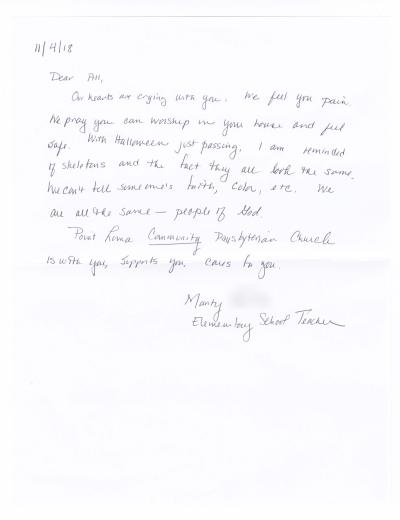 11/4/18
Dear All,
Our hearts are crying with you. We feel you pain.
We pray you can worship in your house and feel
safe. With Halloween just passing, I am reminded
of skeletons and the fact they all look the same.
We can't tell someone's faith, color, etc. We
are all the same — people of God.
Point Loma Community Presbyterian Church
is with you, supports you, cares for you.
Marty
Elementary School Teacher